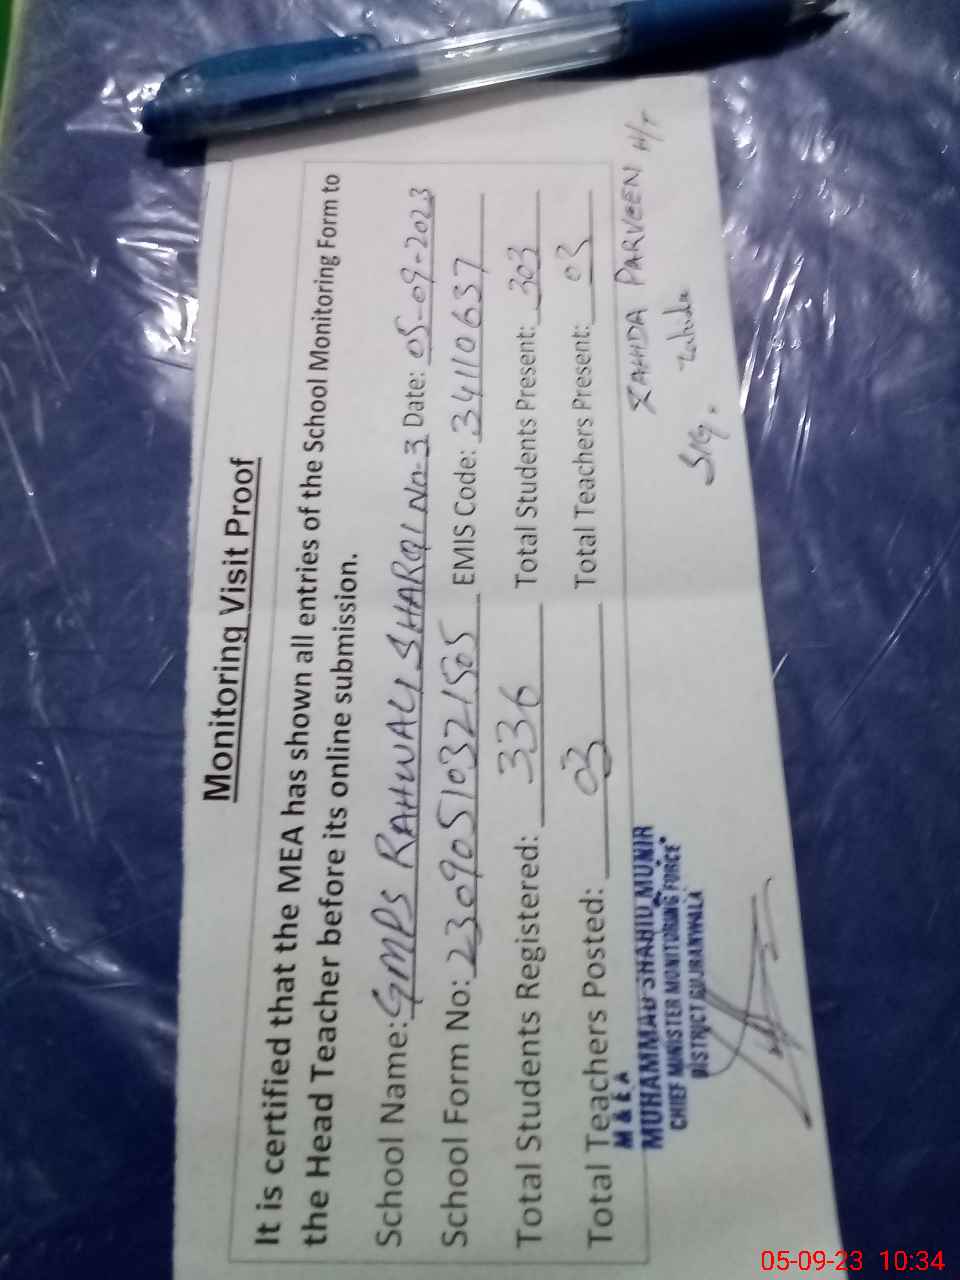 Monitoring Visit Proof
It is certified that the MEA has shown all entries of the School Monitoring Form to
the Head Teacher before its online submission.
School Name: GMPS RAHWALI SHARQI No-3 Date: 05-09-2023
School Form No: 230905103721505 EMIS Code: 34110637
Total Students Registered: 336 Total Students Present: 303
Total Teachers Posted: 03 Total Teachers Present: 03
M & E A
MUHAMMAD SHAHID MUNIR
CHIEF MINISTER MONITORING FORCE
DISTRICT GUJRANWALA
ZAHIDA PARVEEN H/T
Sig. Zahida
05-09-23 10:34